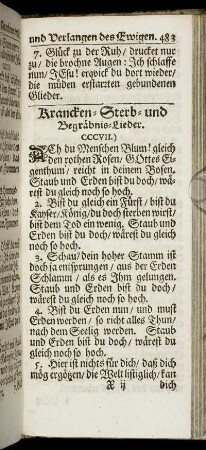 und Verlangen des Ewigen. 483
7. Glück zu der Ruh/ drucket nur
zu/ die brochne Augen: Ich schlaffe
nun/ JEsu! erqvick du dort wieder/
die müden erstarrten gebundenen
Glieder.
Krancken- Sterb- und
Begräbnis-Lieder.
CCCVII.)
ACh du Menschen Blum! gleich
den rothen Rosen/ GOttes Ei-
genthum/ reicht in deinem Bosen.
Staub und Erden bist du doch/ wä-
rest du gleich noch so hoch.
2. Bist du gleich ein Fürst/ bist du
Kayser/ König/ du doch sterben wirst/
bist dem Tod ein wenig. Staub und
Erden bist du doch/ wärest du gleich
noch so hoch.
3. Schau/ dein hoher Stamm ist
doch ja entsprungen/ aus der Erden
Schlamm/ als es Ihm gelungen.
Staub und Erden bist du doch/
wärest du gleich noch so hoch.
4. Bist du Erden nun/ und must
Erden werden/ so richt alles Thun/
nach dem Seelig werden. Staub
und Erden bist du doch/ wärest du
gleich noch so hoch.
5. Hier ist nichts für dich/ daß dich
mög ergötzen/ die Welt listiglich/ kan
X ij dich